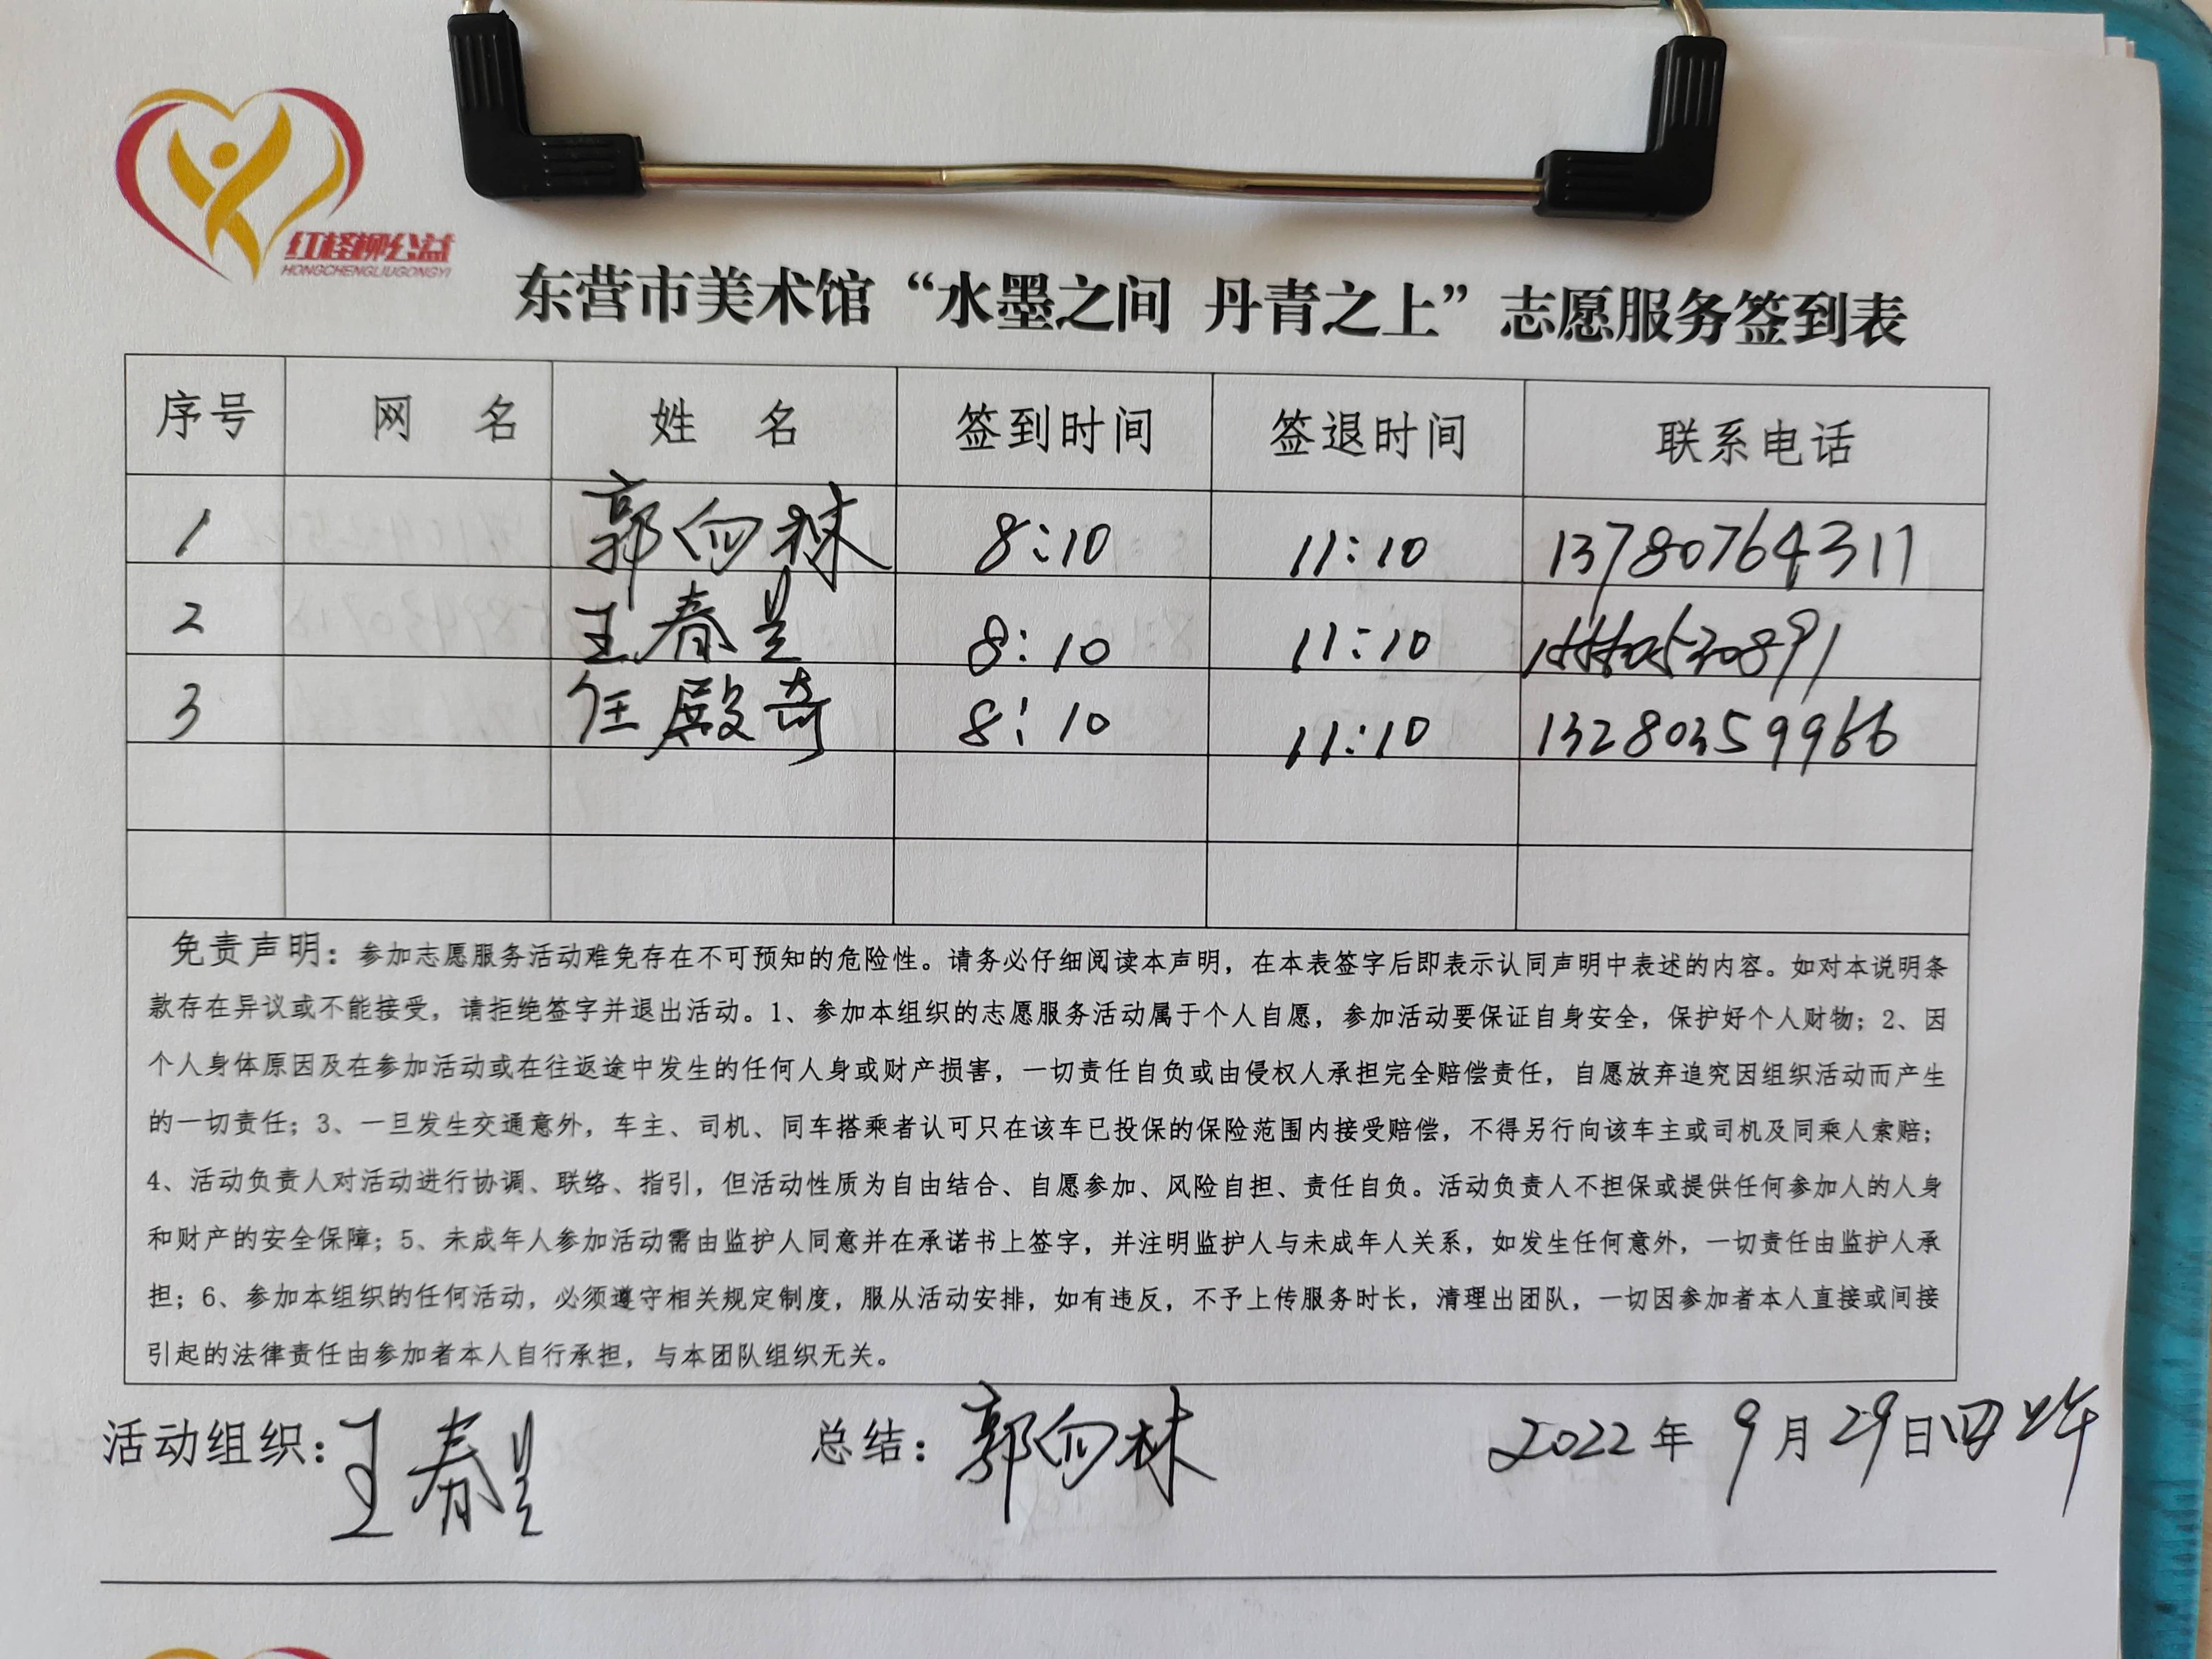 红柽柳公益
HONGCHENGLIUGONGYI
东营市美术馆“水墨之间 丹青之上”志愿服务签到表
序号 网 名 姓 名 签到时间 签退时间 联系电话
1 郭向林 8:10 11:10 13780764311
2 王春 8:10 11:10
3 任殿奇 8:10 11:10 13280359966
免责声明：参加志愿服务活动难免存在不可预知的危险性。请务必仔细阅读本声明，在本表签字后即表示认同声明中表述的内容。如对本说明条
款存在异议或不能接受，请拒绝签字并退出活动。1、参加本组织的志愿服务活动属于个人自愿，参加活动要保证自身安全，保护好个人财物；2、因
个人身体原因及在参加活动或在往返途中发生的任何人身或财产损害，一切责任自负或由侵权人承担完全赔偿责任，自愿放弃追究因组织活动而产生
的一切责任；3、一旦发生交通意外，车主、司机、同车搭乘者认可只在该车已投保的保险范围内接受赔偿，不得另行向该车主或司机及同乘人索赔；
4、活动负责人对活动进行协调、联络、指引，但活动性质为自由结合、自愿参加、风险自担、责任自负。活动负责人不担保或提供任何参加人的人身
和财产的安全保障；5、未成年人参加活动需由监护人同意并在承诺书上签字，并注明监护人与未成年人关系，如发生任何意外，一切责任由监护人承
担；6、参加本组织的任何活动，必须遵守相关规定制度，服从活动安排，如有违反，不予上传服务时长，清理出团队，一切因参加者本人直接或间接
引起的法律责任由参加者本人自行承担，与本团队组织无关。
活动组织：王春 总结：郭向林 2022年9月29日四上午